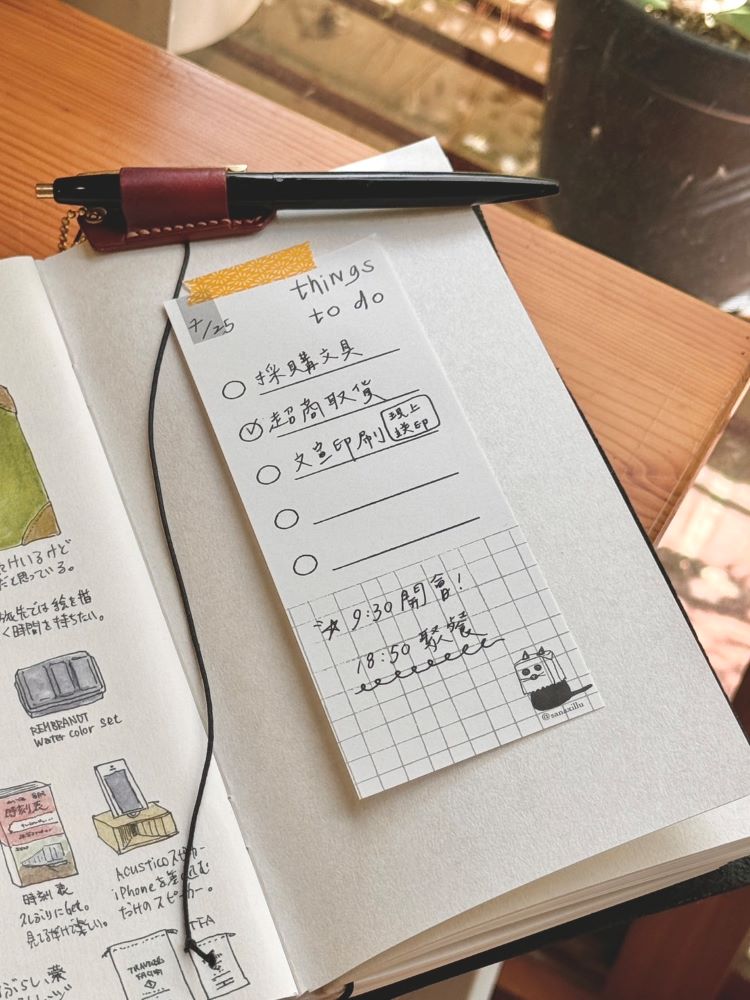 things
to do
7/25
採購文具
超商取貨
文宣印刷 線上
送印
☆ 9:30 開會!
18:50 聚餐
@sanaxillu
けいるけど
だと思っている。
旅先では絵を描
く時間を持ちたい。
REMBRANDT
Water color set
時刻表
時刻表
久しぶりにGet。
見てるだけで楽しい。
ACUSTICO スピーカー
iPhoneを差し込む
だけのスピーカー。
TRAVELER'S
FACTORY
TFA
ぶらし、薬